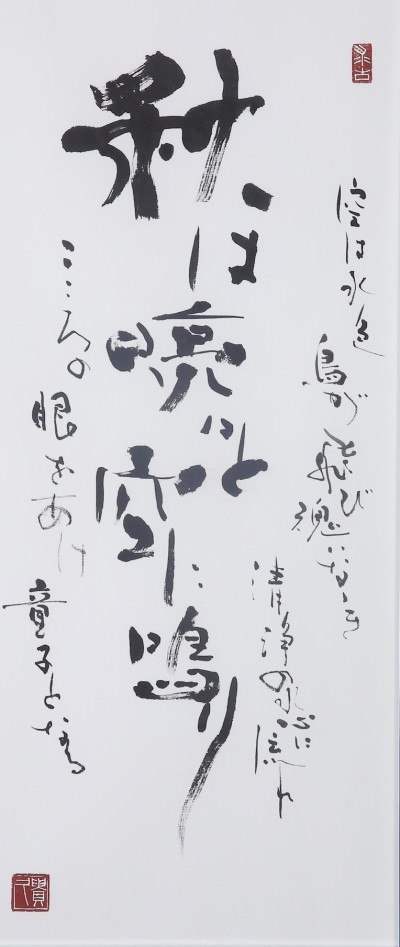 秋は喨々と空に鳴り
空は水色
鳥が飛び
魂いななき
清浄の水心に流れ
こころの眼をあけ
童子となる